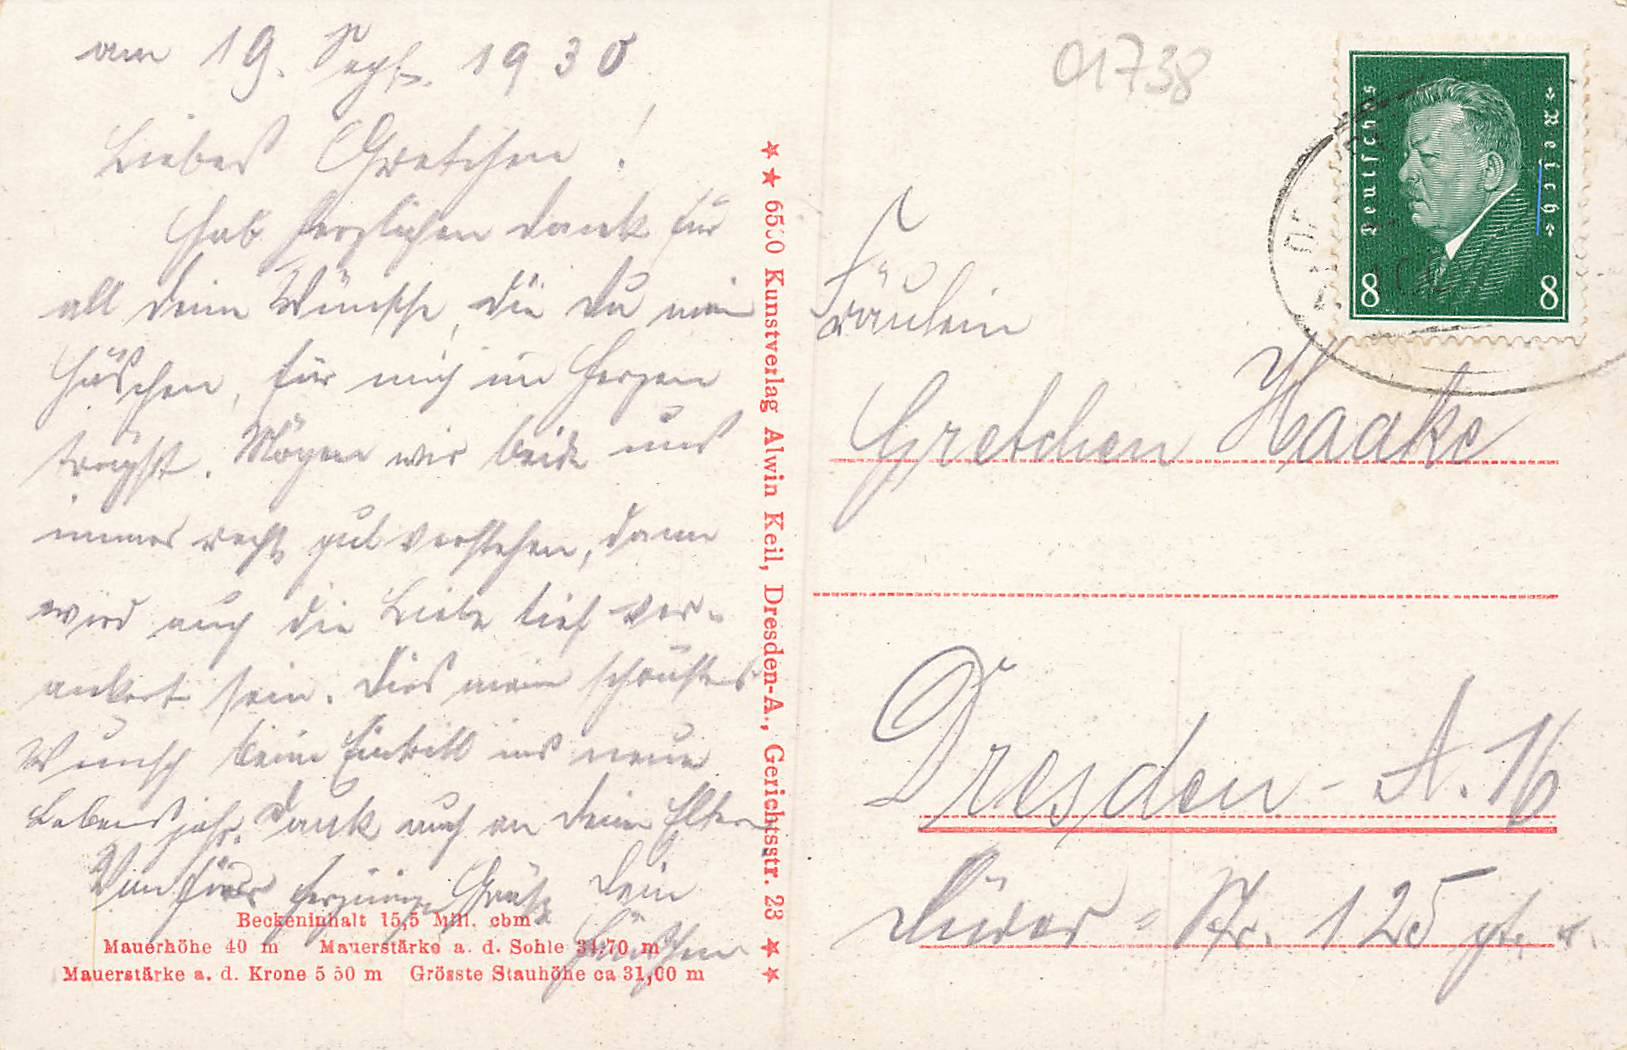 am 19. Sept. 1930
Liebes Gretchen!
Hab herzlichen Dank für
all deine Wünsche, die Du mein
Häschen, für mich im Herzen
trägst. Mögen wir beide uns
immer recht gut verstehen, dann
wird auch die Liebe tief ver-
ankert sein. Dies mein schönster
Wunsch beim Eintritt ins neue
Lebensjahr. Dank auch an deine Eltern
herzinnige Grüße Dein
Beckeninhalt 15,5 Mill. cbm
Mauerhöhe 40 m Mauerstärke a. d. Sohle 34,70 m
Mauerstärke a. d. Krone 5 50 m Grösste Stauhöhe ca 31,00 m
Kunstverlag Alwin Keil, Dresden-A., Gerichtsstr. 23
01738
Deutsches Reich
8 8
Fräulein
Gretchen Haake
Dresden-A. 16
Dürer-Str. 125